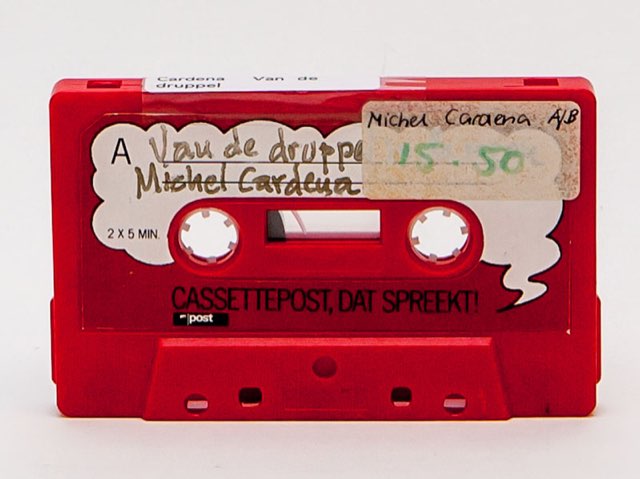 Cardena Van de
druppel
Michel Cardena A/B
15.50
A Van de druppe
Michel Cardena
2 X 5 MIN.
CASSETTEPOST, DAT SPREEKT!
post